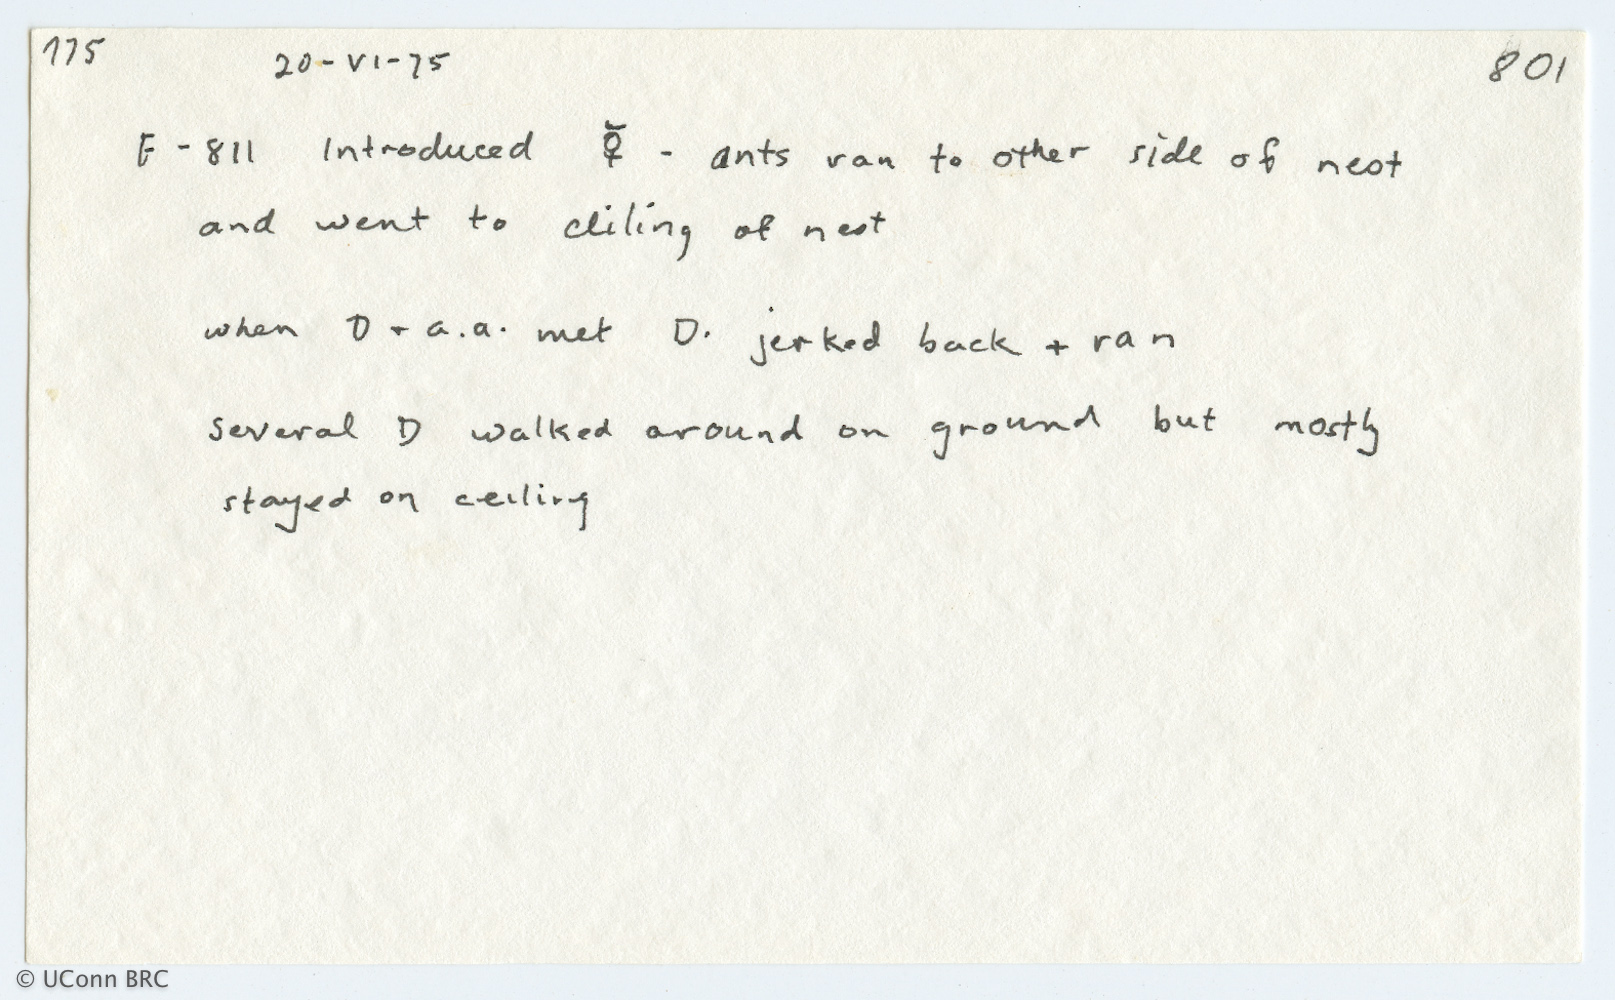 175 20-VI-75 801
E-811 Introduced ☿ - ants ran to other side of nest
and went to cliling of nest
when D + a.a. met D. jerked back + ran
several D walked around on ground but mostly
stayed on ceiling
© UConn BRC